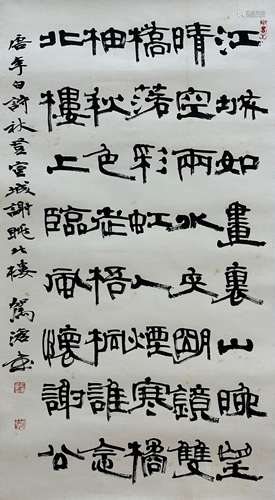 江城如畫裏山晚望
晴空兩水夾明鏡雙
橋落彩虹人煙寒橘
柚秋色老梧桐誰念
北樓上臨風懷謝公
唐李白詩秋登宣城謝朓北樓